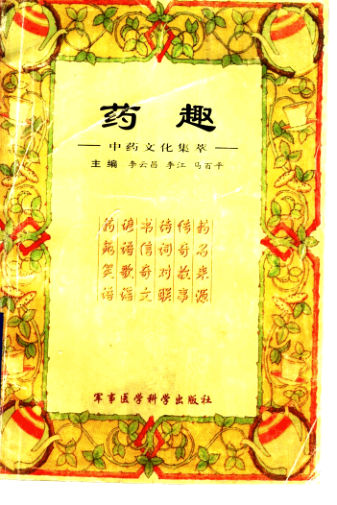 药 趣
— 中药文化集萃 —
主编 李云昌 李江 马百平
药名来源
传奇故事
诗词对联
书信奇文
谚语歌谣
药谜笑话
军事医学科学出版社